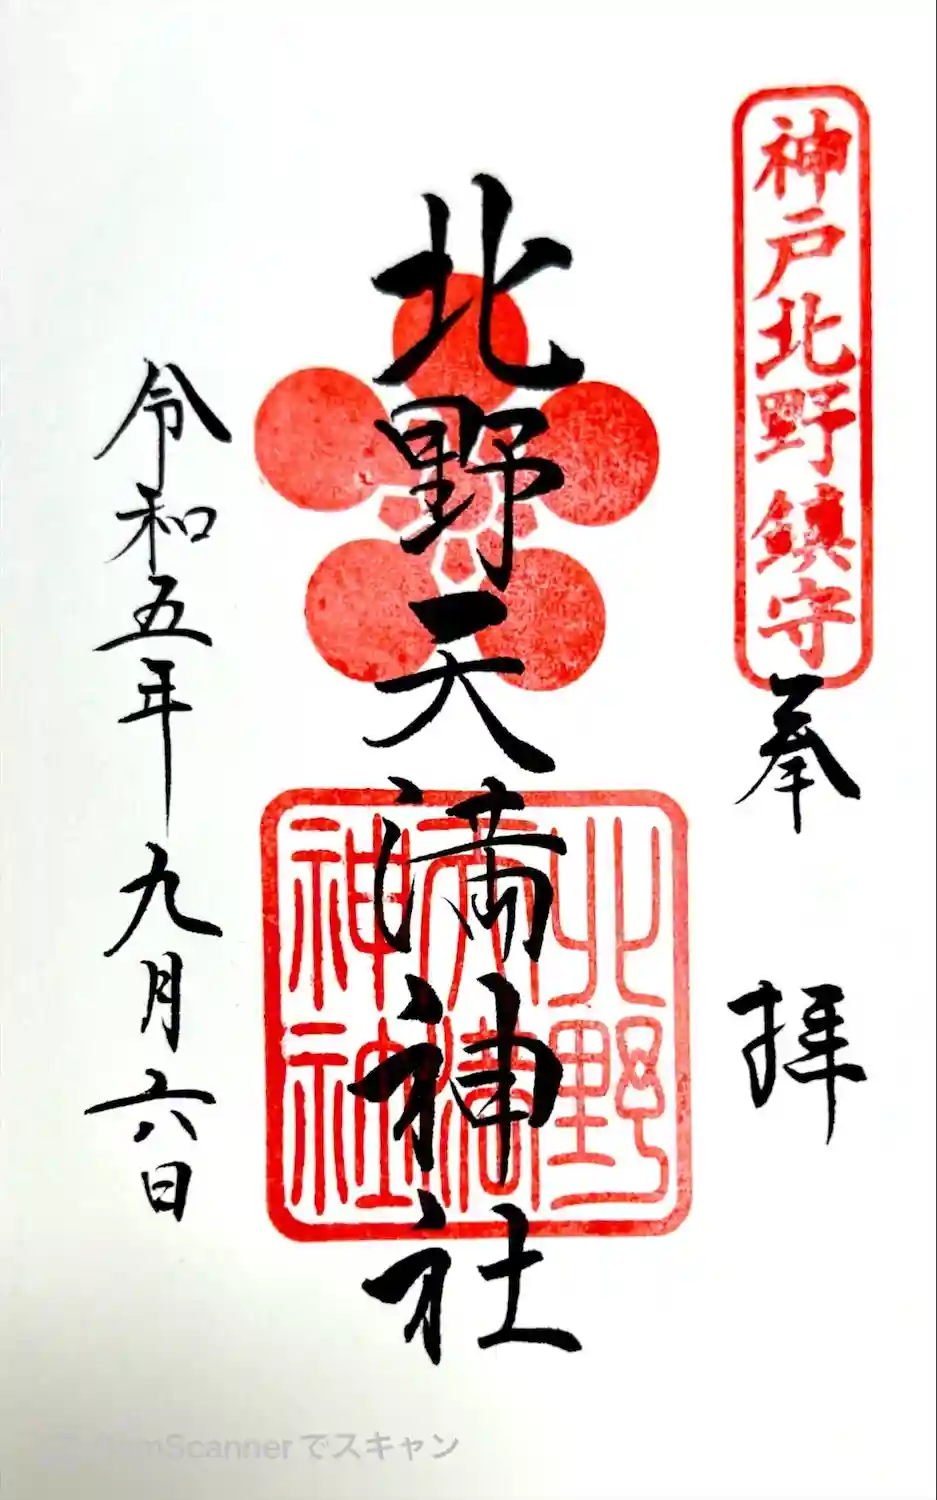 神戸北野鎮守
奉拝
北野天満神社
北野
天満
神社
令和五年九月六日
Scannerでスキャン